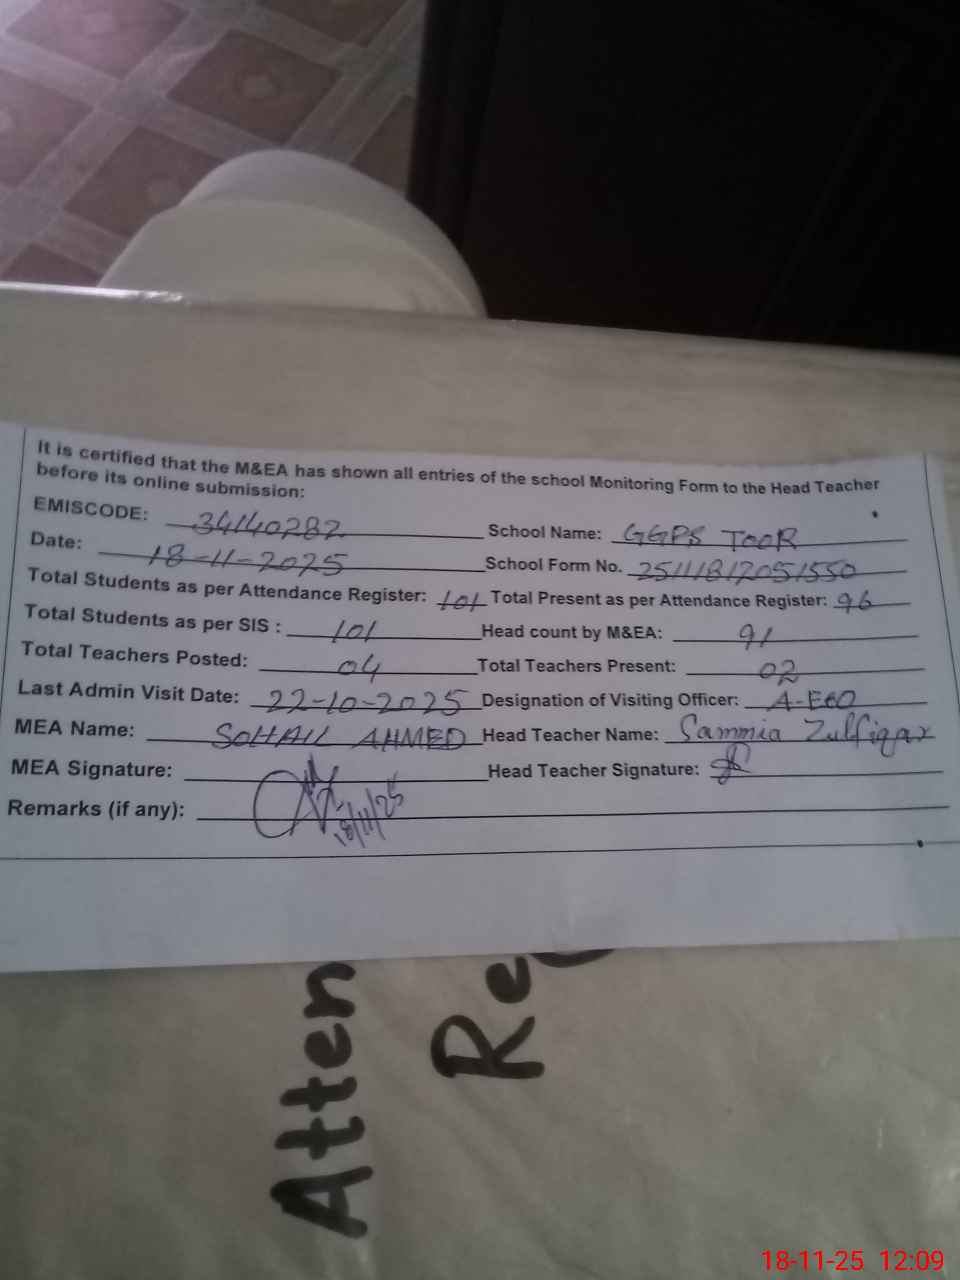 It is certified that the M&EA has shown all entries of the school Monitoring Form to the Head Teacher
before its online submission:
EMISCODE: 34140282 School Name: GGPS TOOR
Date: 18-11-2025 School Form No. 25111812051550
Total Students as per Attendance Register: 101 Total Present as per Attendance Register: 96
Total Students as per SIS : 101 Head count by M&EA: 91
Total Teachers Posted: 04 Total Teachers Present: 02
Last Admin Visit Date: 22-10-2025 Designation of Visiting Officer: A-EEO
MEA Name: SOHAIL AHMED Head Teacher Name: Sammia Zulfiqar
MEA Signature: Head Teacher Signature:
Remarks (if any): 18/11/25
Atten
Re
18-11-25 12:09